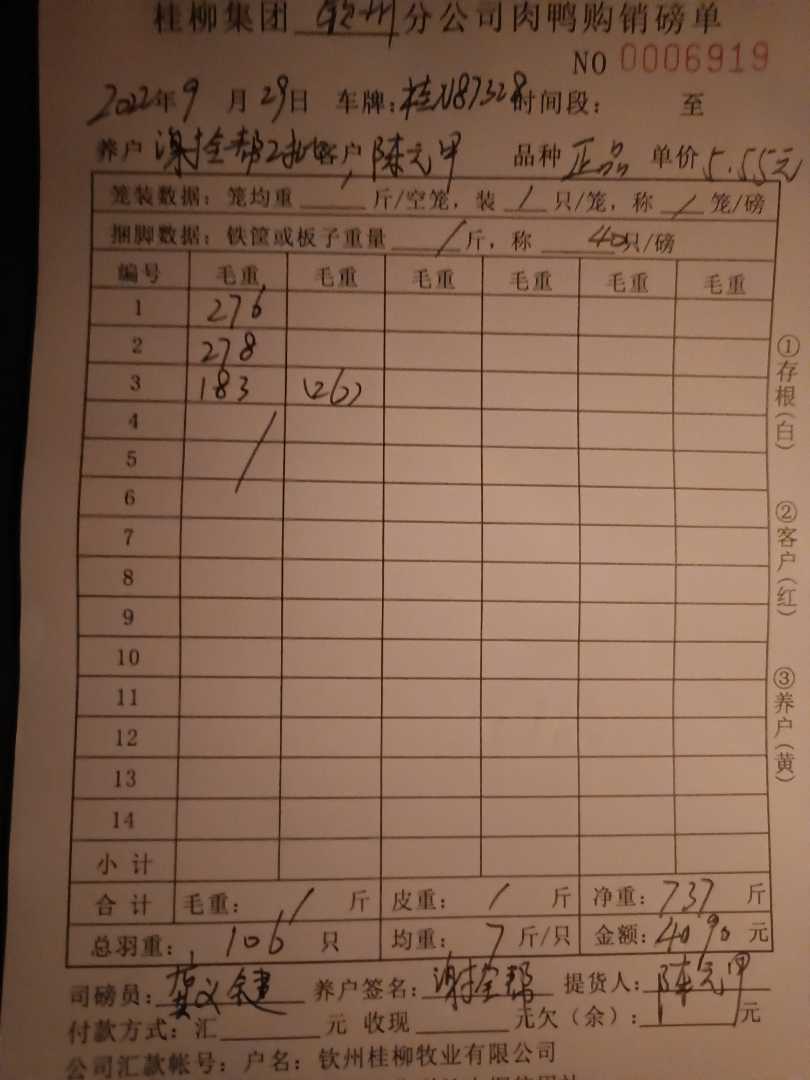 桂柳集团 钦州 分公司肉鸭购销磅单
NO 0006919
2022年9月29日 车牌:桂N87328 时间段: 至
养户 谢拴帮2批 客户 陈元甲 品种 正品 单价 5.55元
笼装数据:笼均重 / 斤/空笼,装 / 只/笼,称 / 笼/磅
捆脚数据:铁筐或板子重量 / 斤,称 40只/磅
编号 毛重 毛重 毛重 毛重 毛重 毛重
1 276
2 278
3 183 (26)
4
5
6
7
8
9
10
11
12
13
14
小计
合计 毛重: / 斤 皮重: / 斤 净重: 737 斤
总羽重: 106 只 均重: 7 斤/只 金额: 4090 元
司磅员: 义健 养户签名: 谢拴帮 提货人: 陈元甲
付款方式:汇 元 收现 元欠(余): / 元
公司汇款帐号:户名:钦州桂柳牧业有限公司
①存根(白)
②客户(红)
③养户(黄)